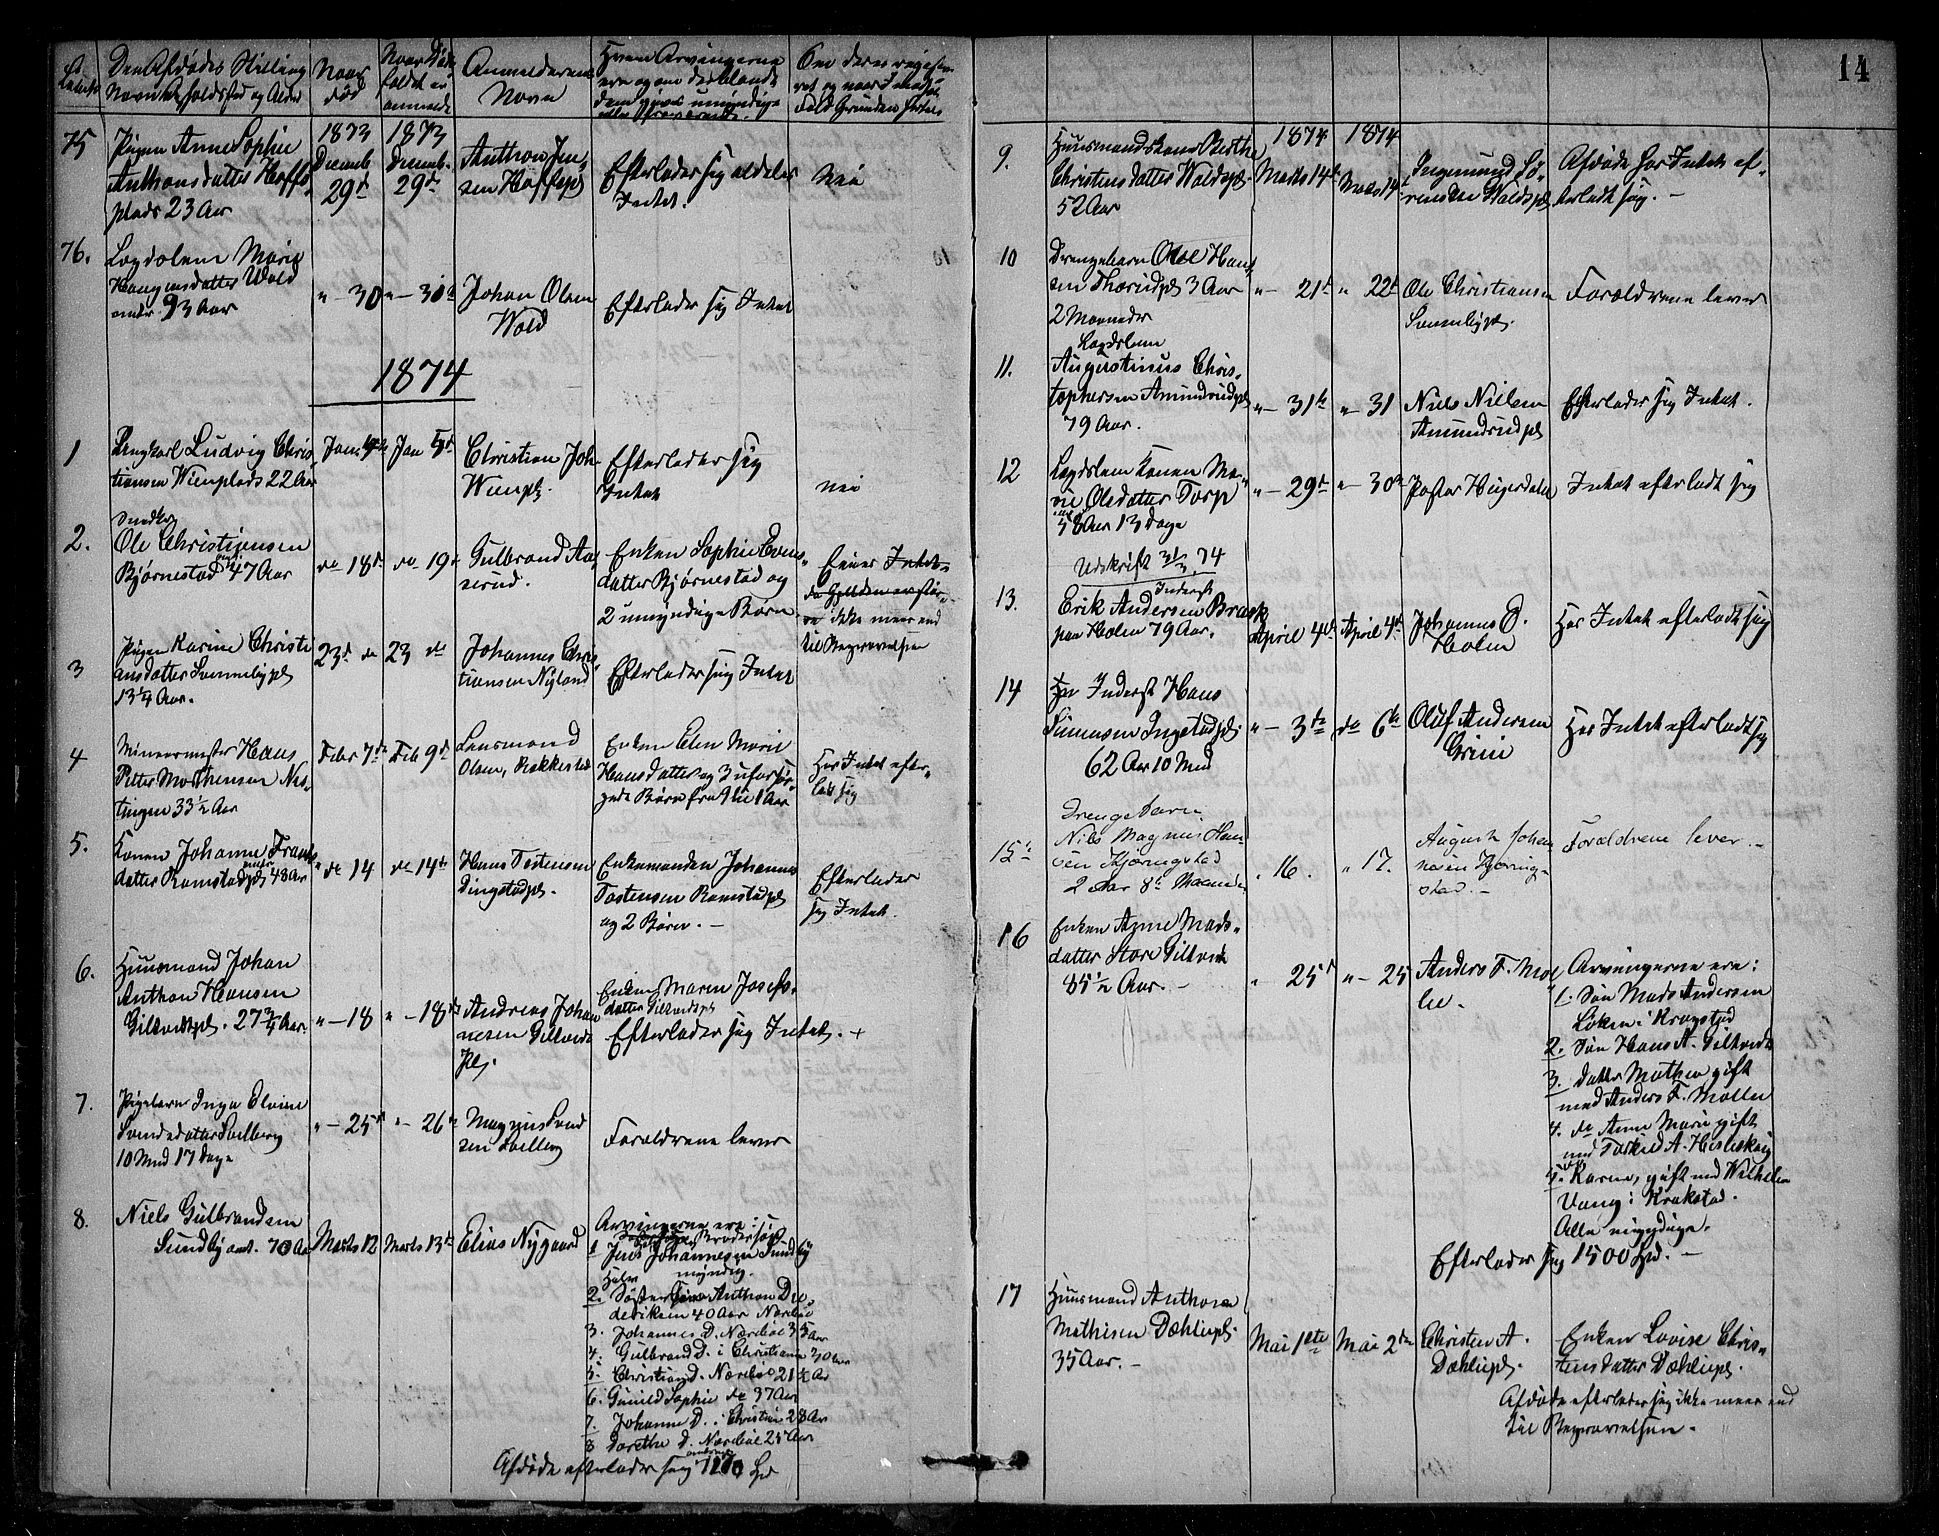 Den Afdødes Stilling
Navn Opholdssted og Alder
Naar
død
Naar Døds
faldet er
anmeldt
Anmelderens
Navn
Hvem Arvingerne
ere og om iblandt
dem gives umyndige
75
Pigen Anne Sophie
Anthonsdatter Hoffs
plads 23 Aar
1873
Decemb
29d
1873
Decemb.
29d
Anthon Jen
sen Hoffspl
Efterlader sig aldeles
Intet.
Nei
76.
Lægdslem Marie
Haagensdatter Wold
omtr. 93 Aar
" - 30
" - 30te
Johan Olsen
Wold
Efterlader sig Intet
1874
1
Ungkarl Ludvig Chris
tiansen Wienplads 22 Aar
Janr 4de
Jan 5d
Christian Joh
Wienpl.
Efterlader sig
Intet
nei
2.
Snedker
Ole Christiansen
Bjørnestad omtr 47 Aar
do 18d
do 19d
Gulbrand Aa
serud.
Enken Sophie Evens
datter Bjørnestad og
2 umyndige Børn
Eier Intet
da Gjelden er stør
re ikke mere end
til Begravelsen
3
Pigen Karine Christi
ansdatter Svennebypl
13¼ Aar.
23d do
23 do
Johannes Chris
tiansen Nyland
Efterlader sig Intet
4
Minermester Hans
Petter Morthensen Nes
tingen 33½ Aar
Febr 7de
Feb 9d
Lensmand
Olsen, Rakkestad
Enken Elen Marie
Hansdatter og 3 uforsør
gede Børn fra 9 til 1 Aar
Har Intet efter
ladt sig
5.
Konen Johanne Frants
datter Ramstadpl omtr 48 Aar
do 14
do 14de
Hans Tostensen
Dingstadpl.
Enkemanden Johannes
Tostensen Ramstadpl
og 2 Børn. -
Efterlader
sig Intet.
6.
Huusmand Johan
Anthon Hansen
Giltvedtpl. 27¾ Aar.
" - 18
" - 18de
Andreas Johan
nesen Giltvedt
Pl.
Enken Maren Josefs
datter Giltvedtpl
Efterlader sig Intet. +
7.
Pigebarn Inga Elvine
Svendsdatter Solberg
10 Mnd 17 Dage
" - 25d
" - 26d
Magnus Svend
sen Solberg
Forældrene lever
8.
Niels Gulbrandsen
Sundby omt. 70 Aar
Marts 12
Marts 13de
Elias Nygaard
Arvingerne ere:
Brodersøn
1 Jens Johannesen Sundby
Halv myndig.
2. Søster Anthon Die
deriksen 40 Aar Næsbøl
3. Johannes D. Næsbøl 35 Aar
4. Gulbrand D. i Christiania 30 Aar
5. Christian D. Næsbøl 21½ Aar
6. Gunild Sophie do 37 Aar
7. Johanne D. i Christia 28 Aar
8 Dorthe D. Næsbøl 25 Aar
Afdøde efterlader sig omtrent
14
9.
Huusmandskone Berthe
Christensdatter Woldspl.
52 Aar
1874
Marts 14d
1874
Marts 14
Ingemund Sø
rensen Woldspl
Afdøde har Intet ef
terladt sig. -
10
Drengebarn Oluf Han
sen Thorudpl 3 Aar
2 Maaneder
" - 21d
" 22d
Ole Christiansen
Svennebypl.
Forældrene lever
11.
Lægdslem
Augustinus Chris
tophersen Amundrudpl
79 Aar.
" - 31te
" - 31
Niels Nilsen
Amundrudpl
Efterlader sig Intet.
12
Lægdslem Konen Ma
rie Olsdatter Torp
58 Aar 13 Dage
" - 29d
" - 30te
Intet efterladt sig
Udskrift 31/3 74
13.
Inderst
Erik Andersen Brask
paa Holen 79 Aar.
April 4de
April 4de
Johannes O.
Holen
Har Intet efterladt sig
14
Inderst Hans
Simensen Ingstadpl.
62 Aar 10 Mnd
" - 3de
do 6te
Oluf Andersen
Grini
Har Intet efterladt sig
15
Drengebarn
Nils Magnus Han
sen Kjærringstad
2 Aar 8 Maaneder
" 16.
" 17.
August Johan
nesen Kjæring
stad. -
Forældrene lever. -
16
Enken Anne Mads
datter Store Giltvedt
85½ Aar. -
" 25d
" - 25
Anders F. Møl
ler.
Arvingerne ere:
1. Søn Mads Andersen
Løken i Kragstad
2. Søn Hans A. Giltvedt
3. Datter Mathea gift
med Anders F. Møller
4. do Anne Marie gift
med Torkild A. Haslekaas
5. Karen, gift med Wilhelm
Vang i Krakstad.
Alle myndige.
Efterlader sig 1500 Spd. -
17
Huusmand Anthon
Mathisen Dæhlipl.
35 Aar. -
Mai 1ste
Mai 2den
Christen A.
Dæhlipl.
Enken Lovise Chris
tensdatter Dæhlipl.
Afdøde efterlader sig ikke mere end
til Begravelsen.